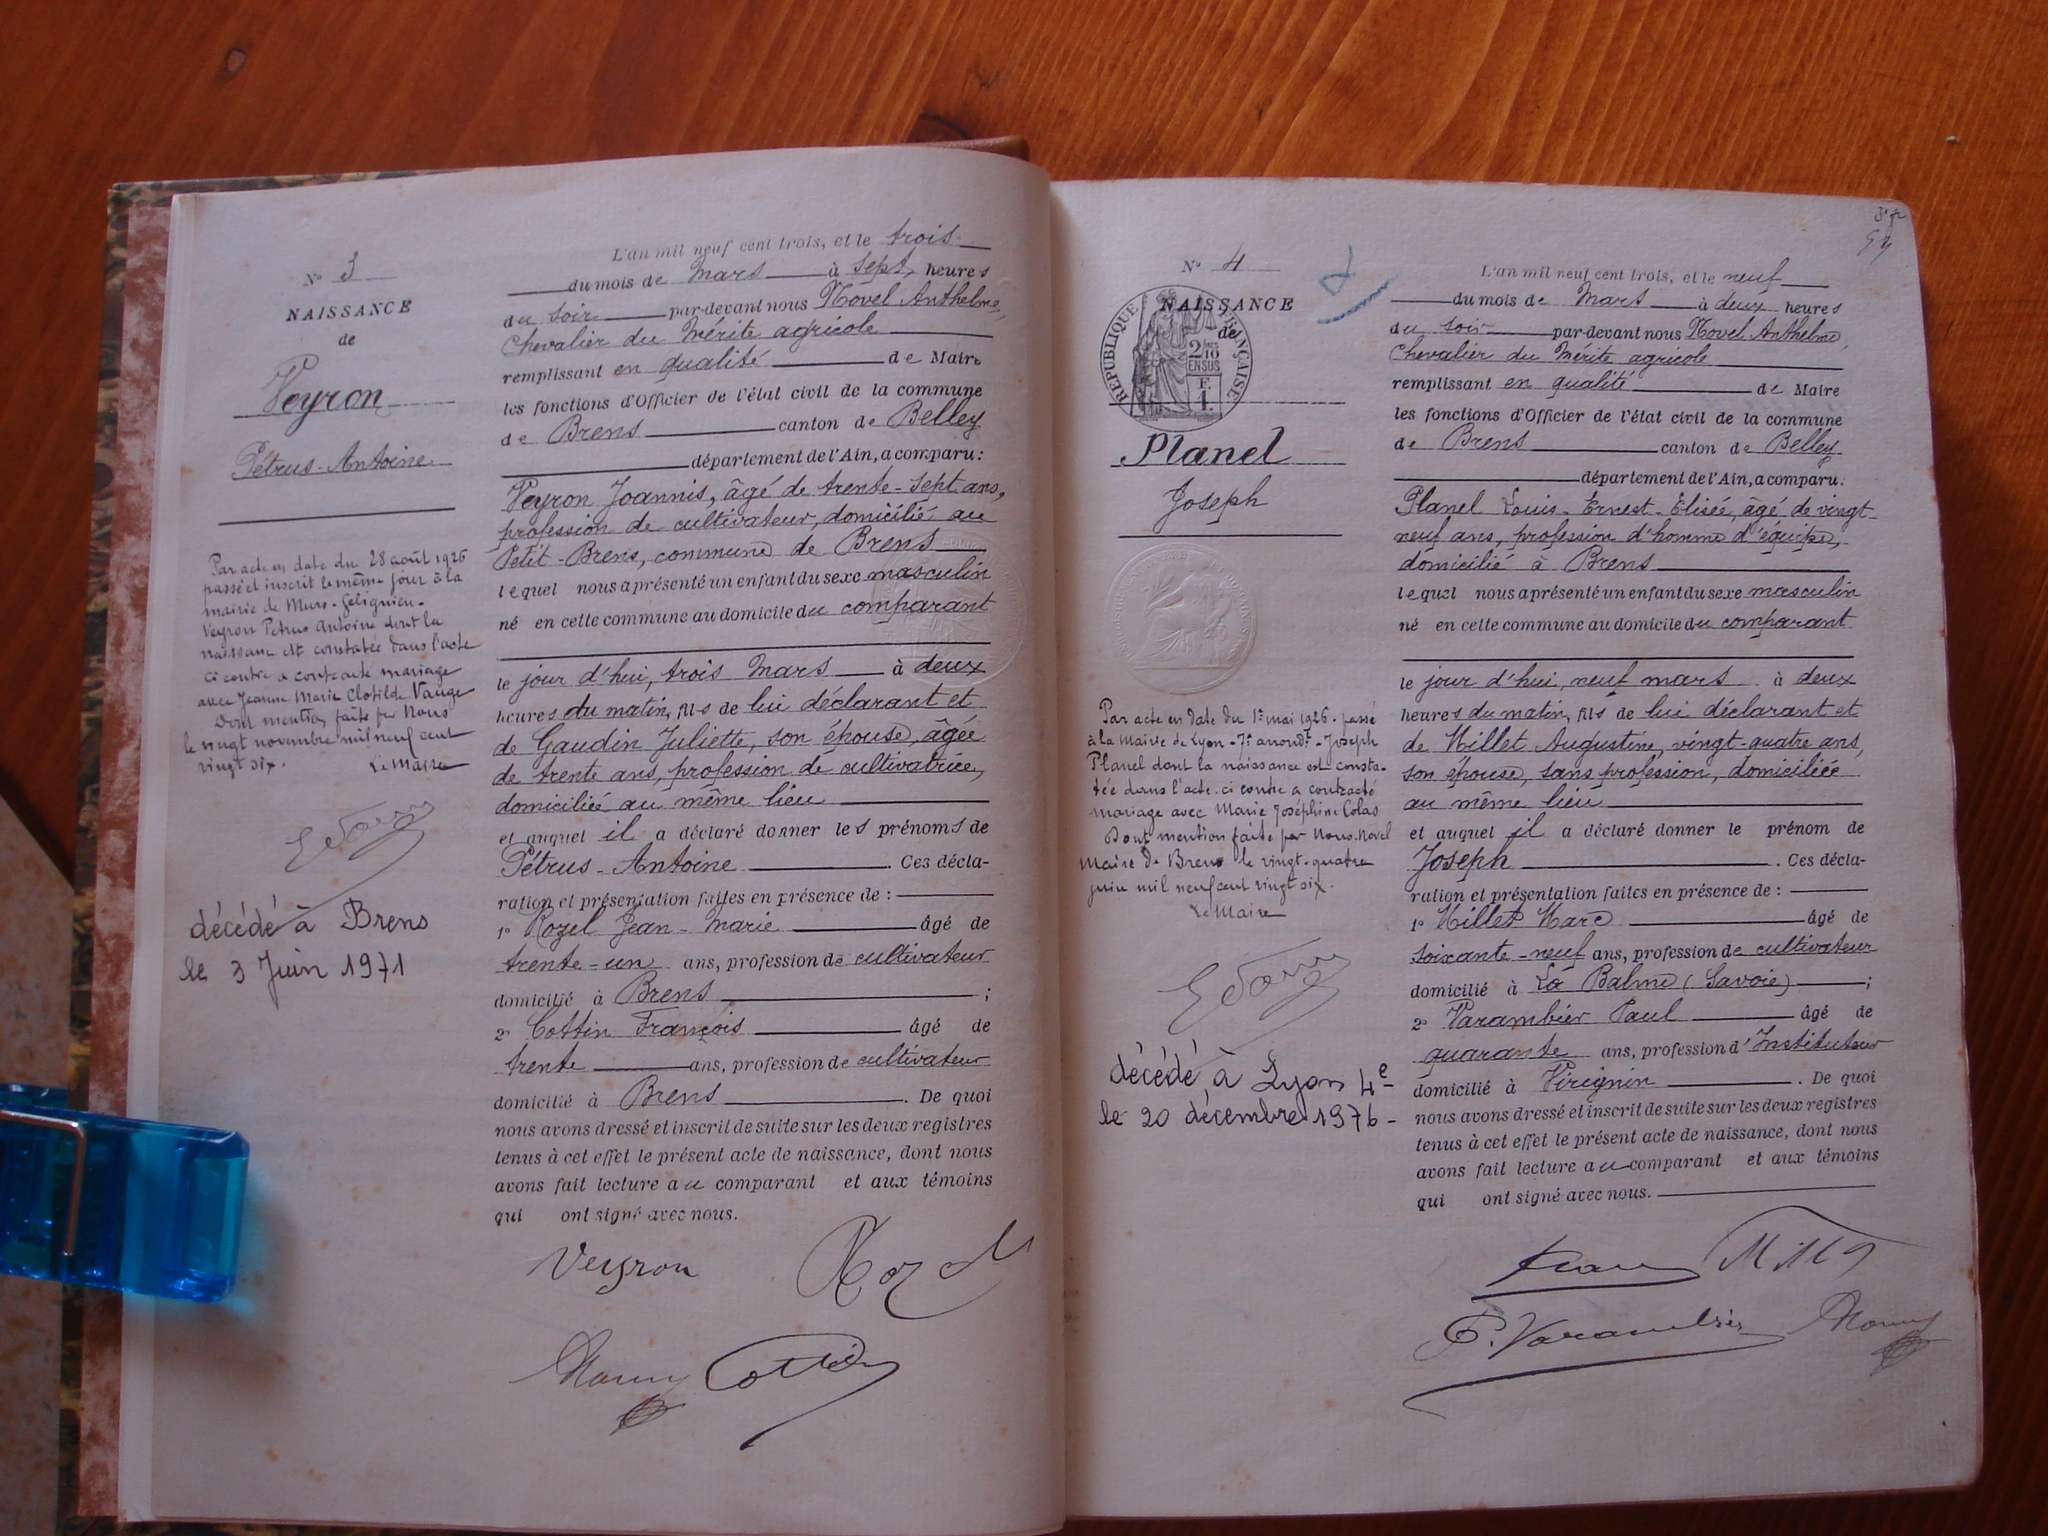 N° 3
NAISSANCE
de
Veyron
Pétrus-Antoine
Par acte en date du 28 août 1926
passé et inscrit le même jour à la
mairie de Murs-Gélignieu.
Veyron Petrus Antoine dont la
naissance est constatée dans l'acte
ci contre a contracté mariage
avec Jeanne Marie Clotilde Vauge
Dont mention faite par Nous
le vingt novembre mil neuf cent
vingt six. Le Maire
décédé à Brens
le 3 Juin 1971
L'an mil neuf cent trois, et le trois
du mois de Mars à sept heures
du soir par-devant nous Novel Anthelme,
Chevalier du Mérite agricole
remplissant en qualité de Maire
les fonctions d'Officier de l'état civil de la commune
de Brens canton de Belley
département de l'Ain, a comparu:
Veyron Joannis, âgé de trente-sept ans,
profession de cultivateur, domicilié au
Petit-Brens, commune de Brens
lequel nous a présenté un enfant du sexe masculin
né en cette commune au domicile du comparant
le jour d'hui, trois Mars à deux
heures du matin, fils de lui déclarant et
de Gaudin Juliette, son épouse, âgée
de trente ans, profession de cultivatrice,
domiciliée au même lieu
et auquel il a déclaré donner les prénoms de
Pétrus-Antoine. Ces décla-
ration et présentation faites en présence de :
1° Rozel Jean-Marie âgé de
trente-un ans, profession de cultivateur
domicilié à Brens ;
2° Cottin François âgé de
trente ans, profession de cultivateur
domicilié à Brens. De quoi
nous avons dressé et inscrit de suite sur les deux registres
tenus à cet effet le présent acte de naissance, dont nous
avons fait lecture au comparant et aux témoins
qui ont signé avec nous.
Veyron Rozel
Cottin
N° 4
NAISSANCE
de
RÉPUBLIQUE FRANÇAISE
2/10
EN SUS
Planel
Joseph
Par acte en date du 1er mai 1926. passé
à la Mairie de Lyon - 7e arrondt - Joseph
Planel dont la naissance est consta-
tée dans l'acte ci contre a contracté
mariage avec Marie Joséphine Colas
Dont mention faite par Nous. Novel
Maire de Brens le vingt-quatre
juin mil neuf cent vingt six.
Le Maire
décédé à Lyon 4e
le 20 décembre 1976-
L'an mil neuf cent trois, et le neuf
du mois de Mars à deux heures
du soir par-devant nous Novel Anthelme,
Chevalier du Mérite agricole
remplissant en qualité de Maire
les fonctions d'Officier de l'état civil de la commune
de Brens canton de Belley
département de l'Ain, a comparu:
Planel Louis-Ernest-Elisée, âgé de vingt-
neuf ans, profession d'homme d'équipe,
domicilié à Brens
lequel nous a présenté un enfant du sexe masculin
né en cette commune au domicile du comparant
le jour d'hui, neuf mars à deux
heures du matin, fils de lui déclarant et
de Millet Augustine, vingt-quatre ans,
son épouse, sans profession, domiciliée
au même lieu
et auquel il a déclaré donner le prénom de
Joseph. Ces décla-
ration et présentation faites en présence de :
1° Millet Marc âgé de
soixante-neuf ans, profession de cultivateur
domicilié à La Balme (Savoie) ;
2° Varambier Paul âgé de
quarante ans, profession d'Instituteur
domicilié à Virignin. De quoi
nous avons dressé et inscrit de suite sur les deux registres
tenus à cet effet le présent acte de naissance, dont nous
avons fait lecture au comparant et aux témoins
qui ont signé avec nous.
P. Varambier